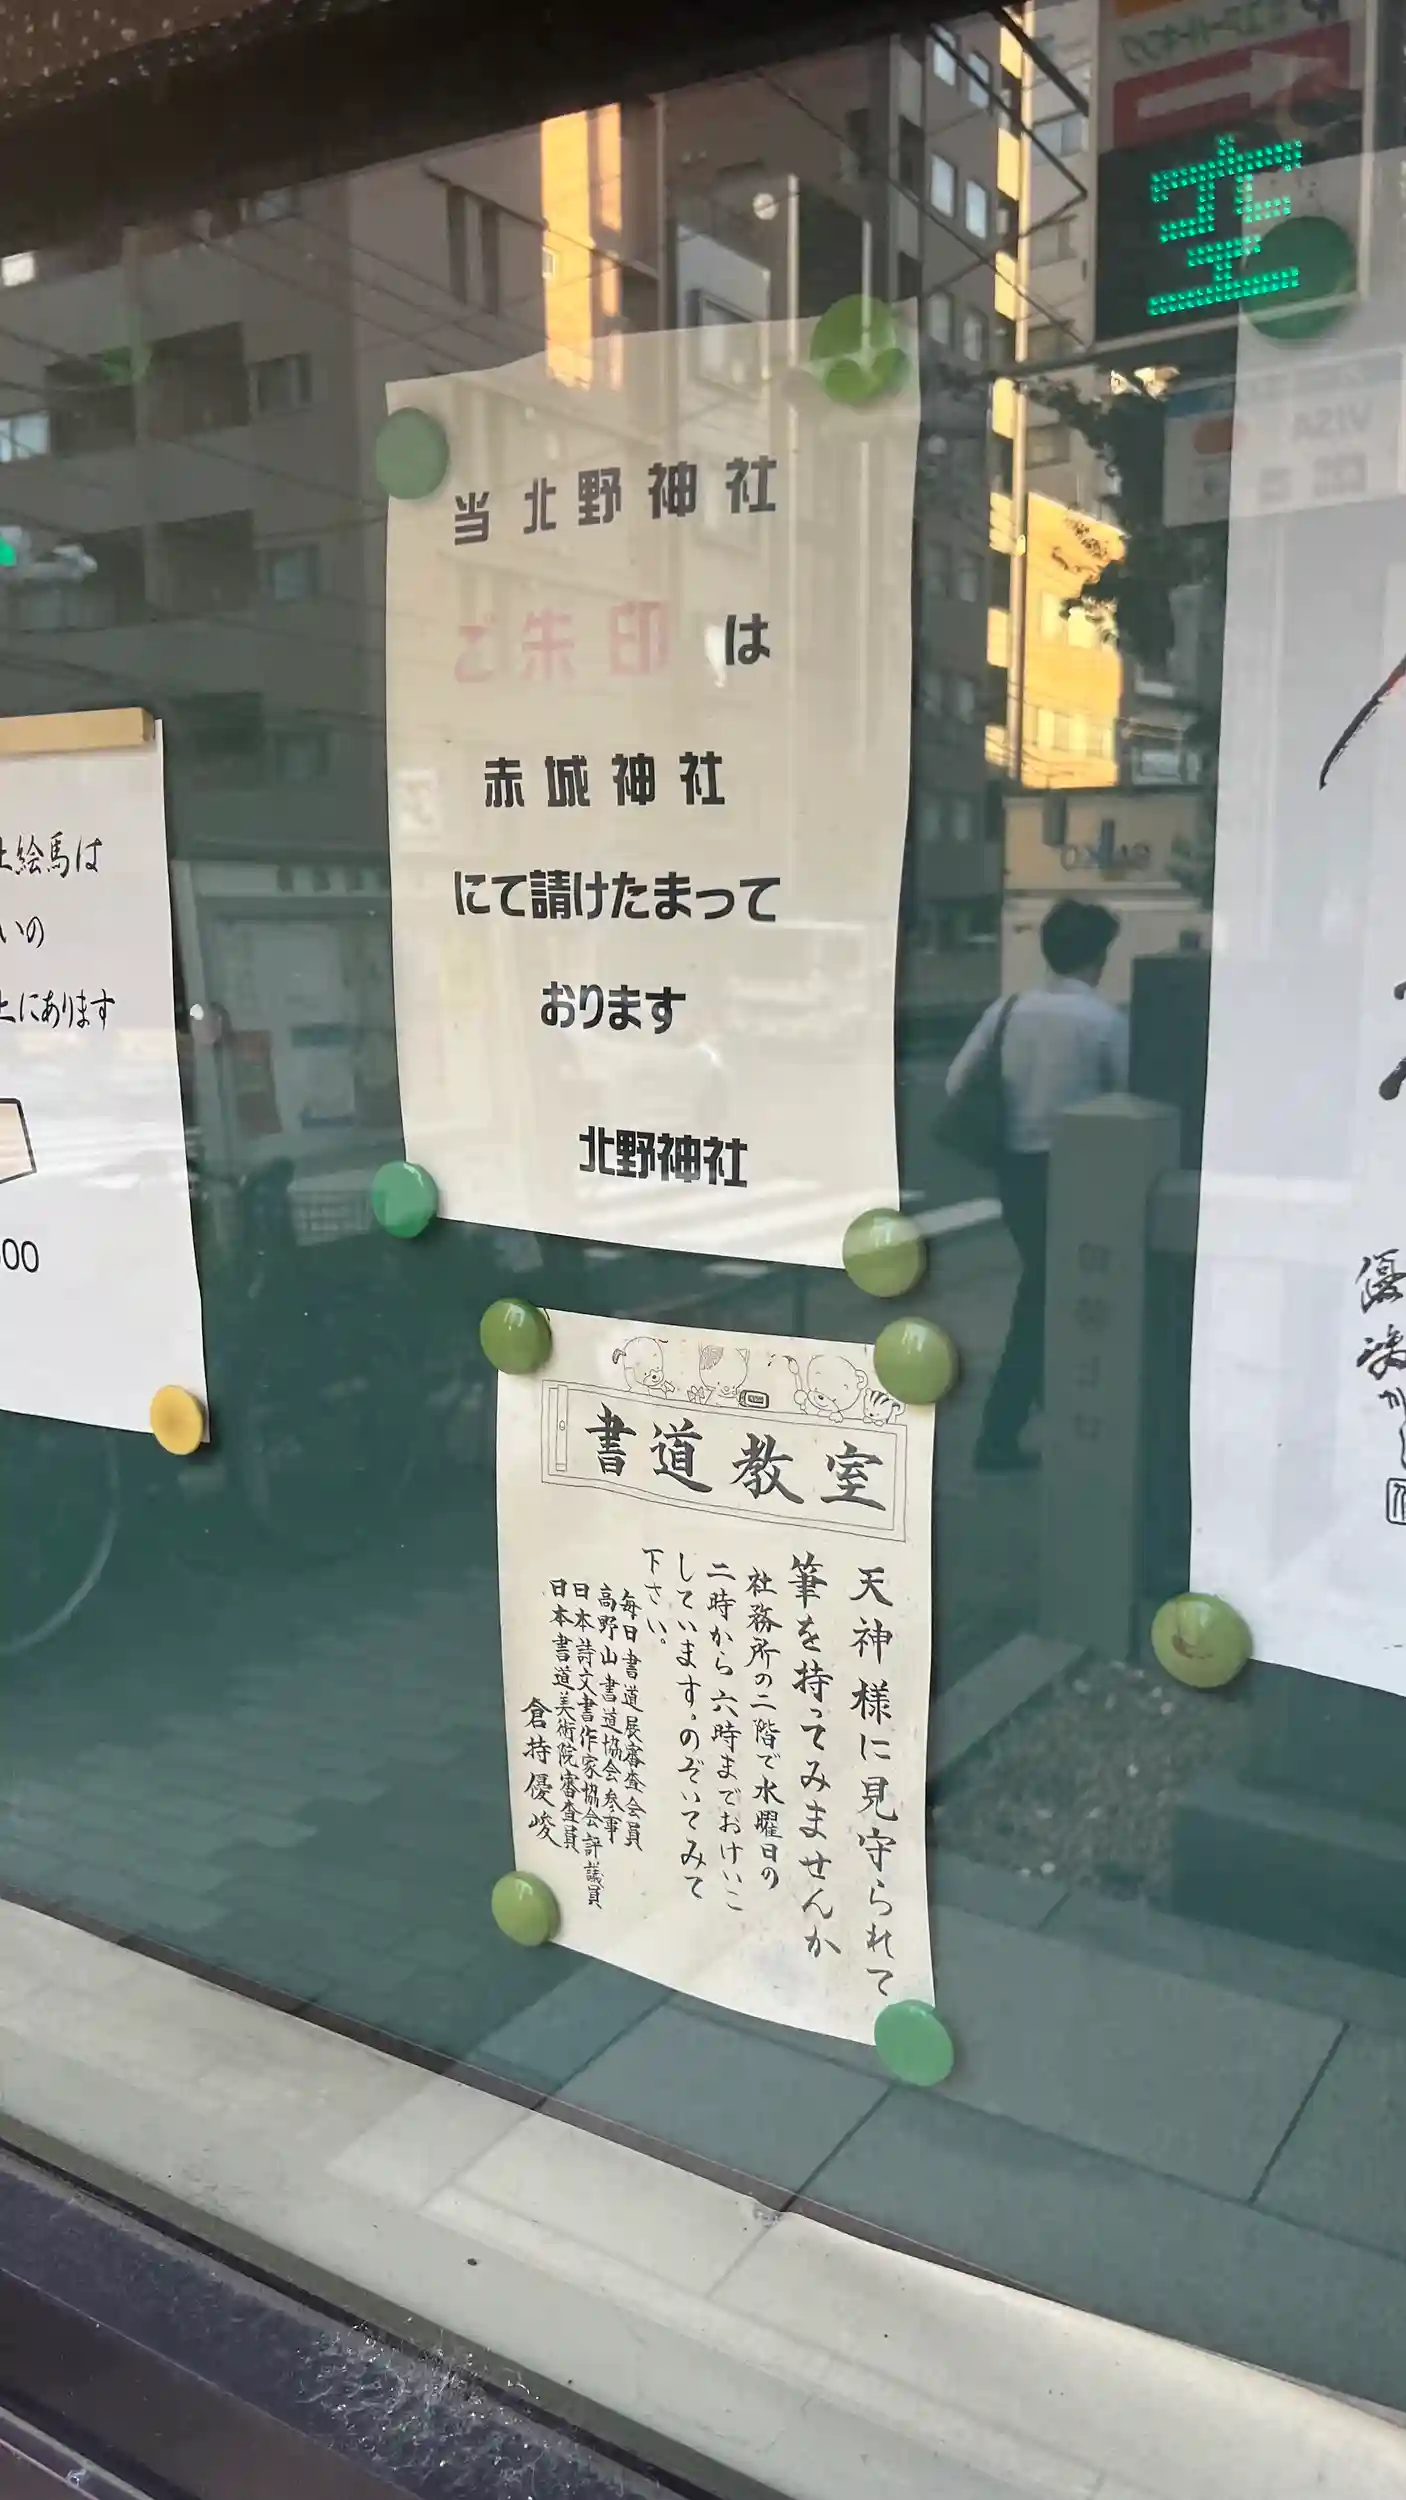 当北野神社
ご朱印 は
赤城神社
にて請けたまって
おります
北野神社
書道教室
天神様に見守られて
筆を持ってみませんか
社務所の二階で水曜日の
二時から六時までおけいこ
しています。のぞいてみて
下さい。
毎日書道展審査会員
高野山書道協会参事
日本詩文書作家協会評議員
日本書道美術院審査員
倉持優峻
絵馬は
いの
上にあります
00
空
VISA